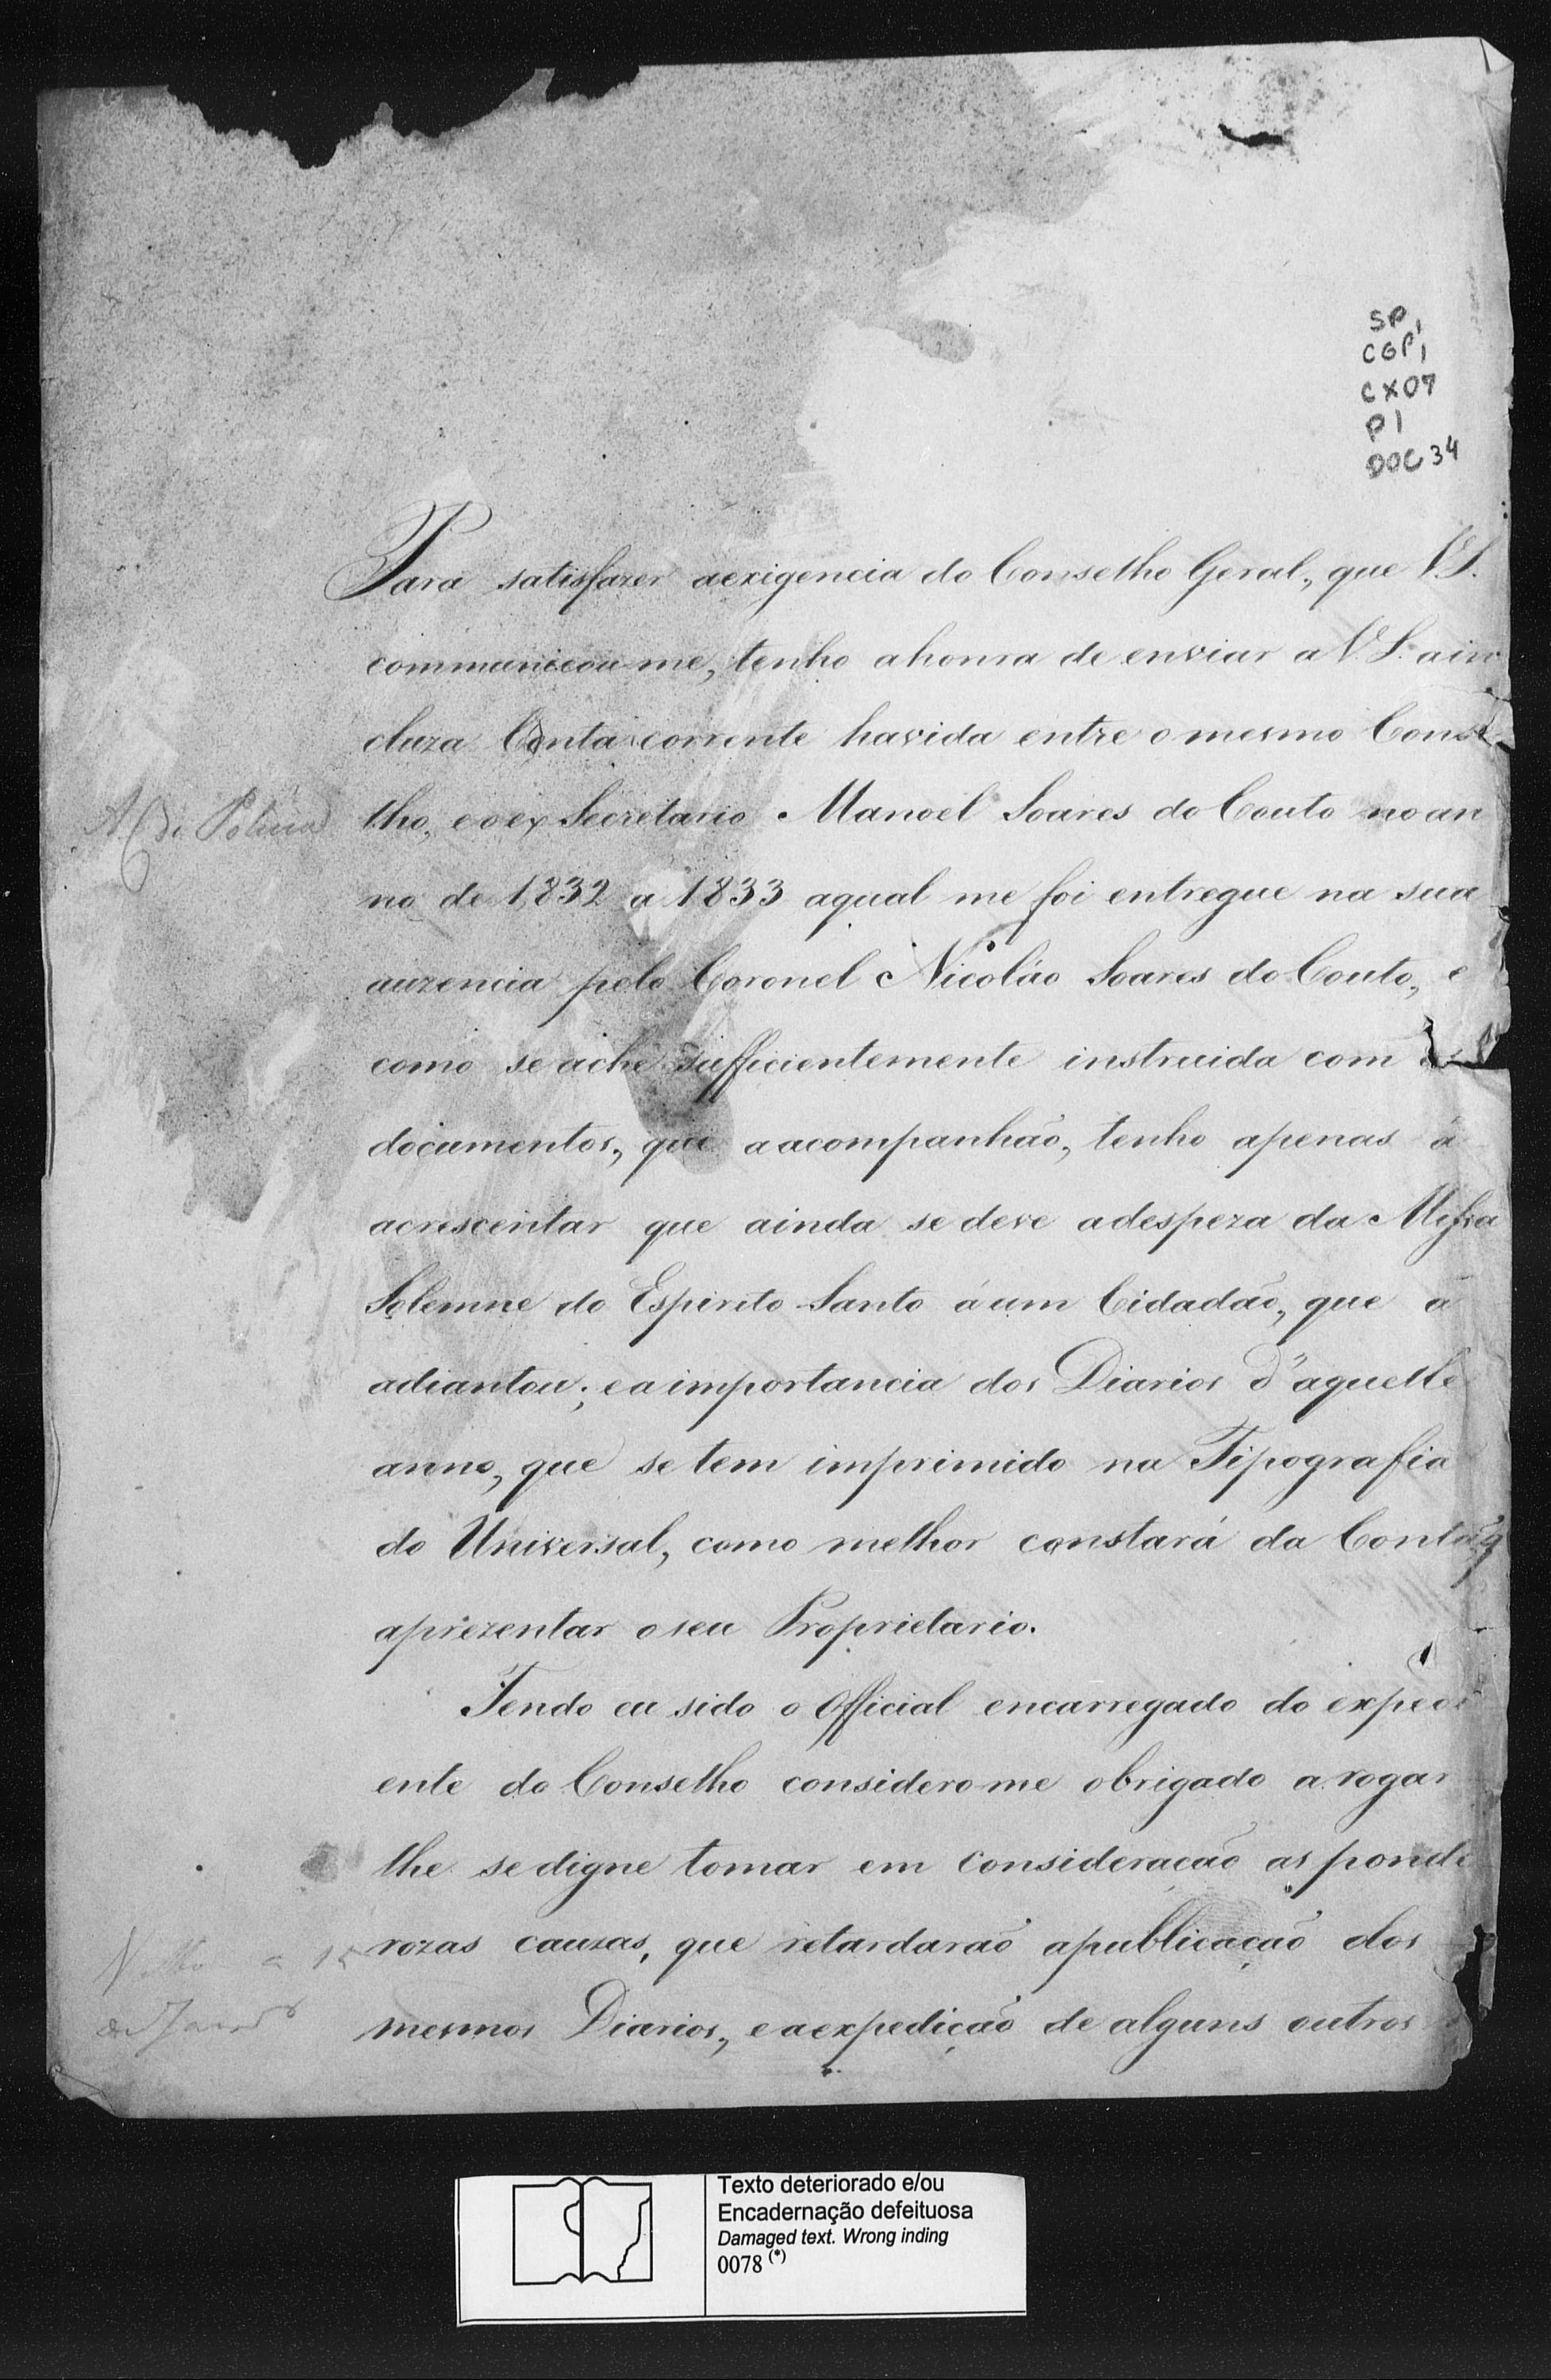 SP,
CGP,
CX07
P1
DOC 34
Para satisfazer aexigencia do Conselho Geral, que V.S.
communicou-me, tenho ahonra de enviar a V. S. ain
cluza Conta corrente havida entre o mesmo Conse
lho, eoex Secretario Manoel Soares do Couto noan
no de 1832 a 1833 aqual me foi entregue na sua
auzencia pelo Coronel Nicoláo Soares do Couto, e
como se ache sufficientemente instruida com
documentos, que aacompanhão, tenho apenas á
acrescentar que ainda se deve adespeza da Missa
Solemne do Espirito Santo á um Cidadão, que a
adiantou; eaimportancia dos Diarios d'aquelle
anno, que se tem imprimido na Tipografia
do Universal, como melhor constará da Conta, q
aprezentar oseu Proprietario.
Tendo eu sido o Official encarregado do expedi
ente do Conselho considero-me obrigado a rogar
lhe se digne tomar em consideração as ponde
rozas cauzas, que retardarão apublicação dos
mesmos Diarios, eaexpedição de alguns outros
Texto deteriorado e/ou
Encadernação defeituosa
Damaged text. Wrong inding
0078 (*)